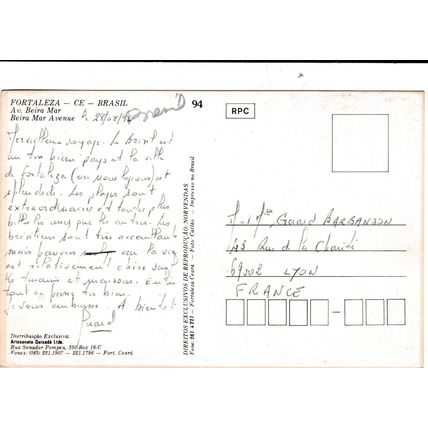 FORTALEZA — CE — BRASIL
Av. Beira Mar
Beira Mar Avenue
le 28/08/94
94
RPC
Merveilleux voyage. Le Brésil est
un très beau pays et la ville
de Fortaleza (où nous logeons) est
splendide. Les plages sont
extraordinaires et toutes plus
belles les unes que les autres. Les
brésiliens sont très accueillants
mais pauvres car la vie
est relativement chère
tout
vous embrasse. A bientôt
DIREITOS EXCLUSIVOS DE REPRODUÇÃO: NORVENDAS
Fone: 261.4211 — Fortaleza-Ceará — Foto: Carlão — Impresso no Brasil
M et Mme Guard BARBANSON
43 Rue de la Charité
69002 LYON
FRANCE
Distribuição Exclusiva:
Artesanato Quixadá Ltda.
Rua Senador Pompeu, 350 Box 16-C
Fones: (085) 221.1907 — 221.1796 — Fort. Ceará